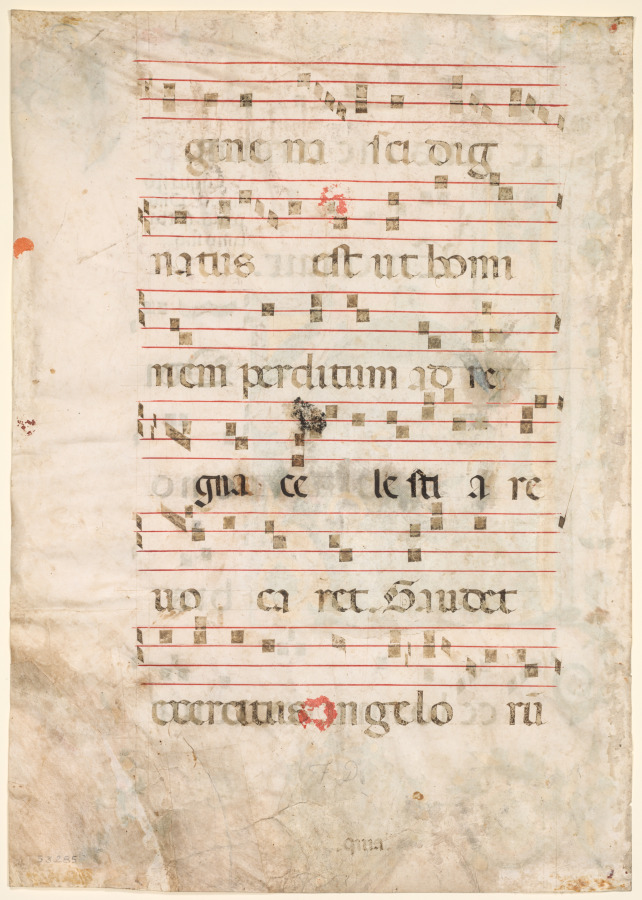 gine na sci dig
natus est ut homi
nem perditum ad re
gna ce le sti a re
uo ca ret. Gaudet
exercitus angelo rū
quia
53.285